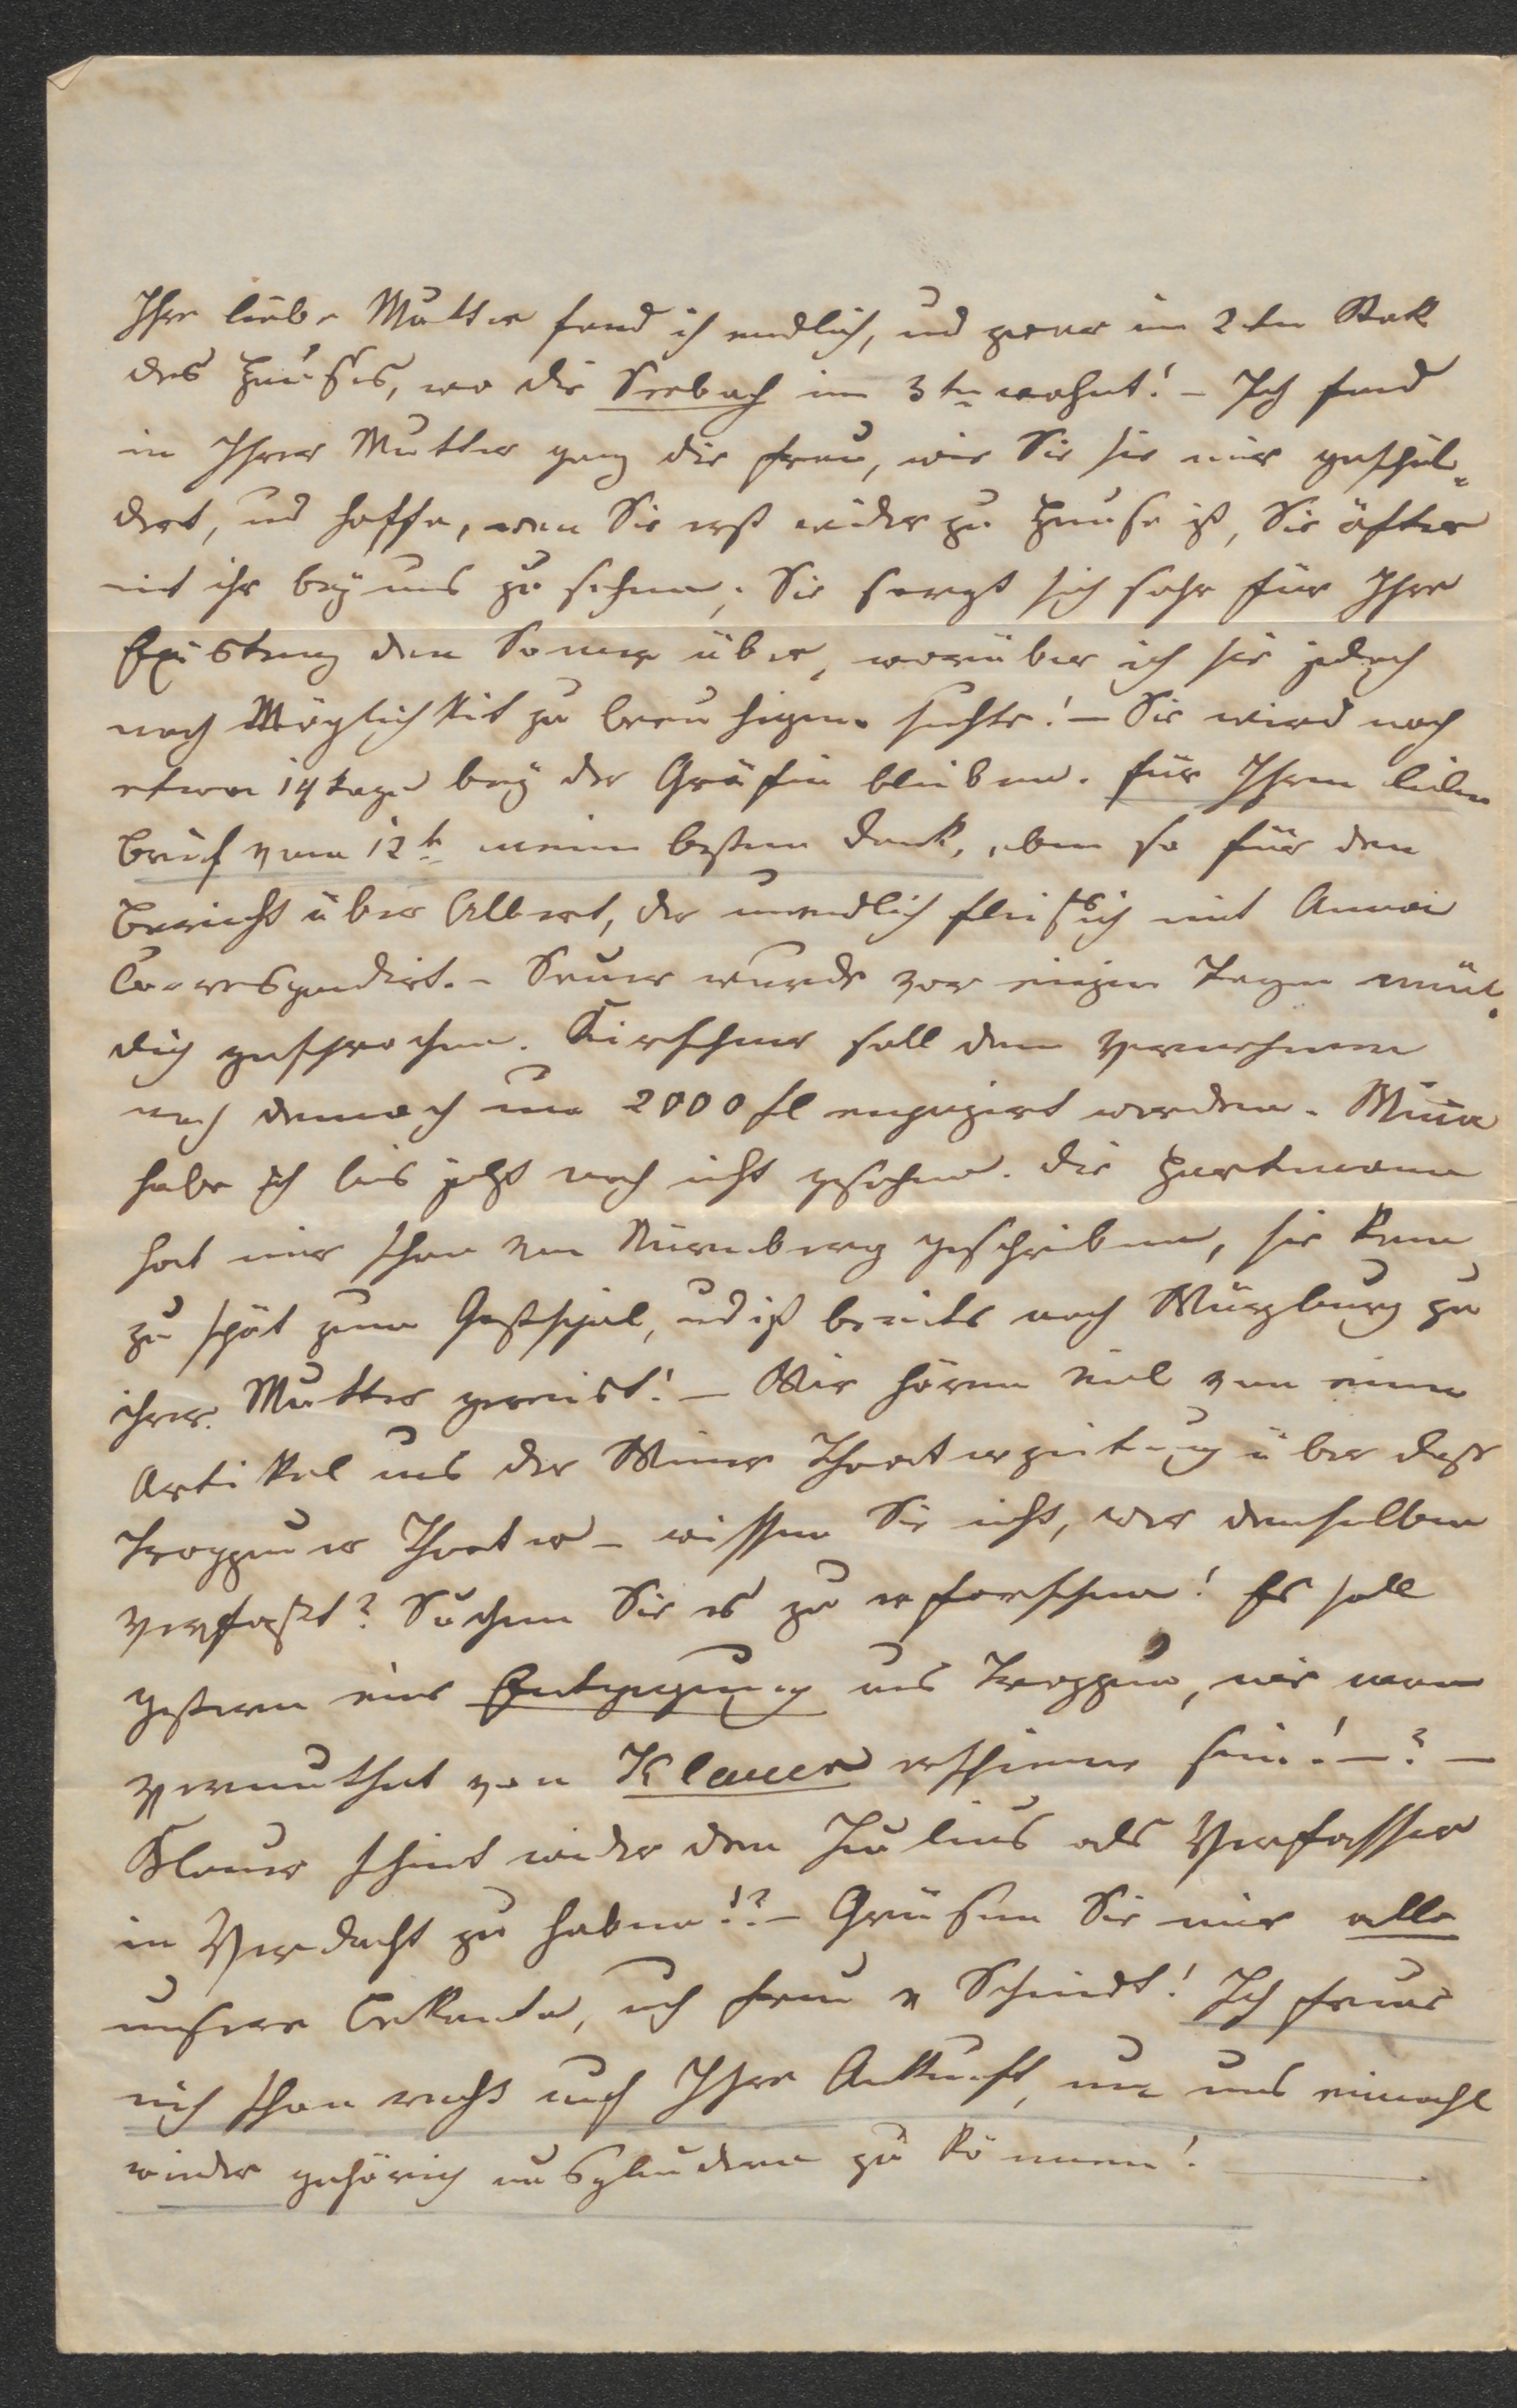 Ihre liebe Mutter fand ich endlich, und zwar im 2ten Stok
des Hauses, wo die Seebach im 3ten wohnt! – Ich fand
in Ihrer Mutter ganz die Frau, wie Sie sie mir geschil=
dert, und hoffe, wen Sie erst wider zu Hause ist, Sie öfter
mit ihr bey uns zu sehen; Sie sorgt sich sehr für Ihre
Existenz den Somer über, worüber ich sie jedoch
nach Möglichkeit zu beruhigen suchte! – Sie wird noch
etwa 14 tage bey der Gräfin bleiben. Für Ihren lieben
Brief vom 12t meinen besten Dank, eben so für den
Bericht über Albert, der unendlich fleißig mit
Correspondirt. – wurde vor einigen Tagen mün=
dig gesprochen. Kirschner soll dem Vernehmen
nach dennoch um 2000 fl engagirt werden. Mina
habe ich bis jetzt noch nicht gesehen. Die Hartmann
hat mir schon von Nürnberg geschrieben, sie kam
zu spät zum Gastspiel, und ist bereits nach Würzburg zu
ihrer Mutter gereist! – Wir hören viel von einem
Artikel aus der Wiener Theaterzeitung über das
Troppauer Theater – wissen Sie nicht, wer denselben
verfaßt? Suchen Sie es zu erforschen! Es soll
gestern eine Entgegnung aus Troppau, wie man
vermuthet von Klauer erschienen sein! – ? –
Klauer scheint wieder den Julius als Verfasser
in Verdacht zu haben!? – Grüßen Sie mir alle
unsere Bekante, auch Frau v Schmidt! Ich freue
mich schon recht auf Ihre Ankunft, um uns einmahl
wieder gehörig ausplaudern zu können!